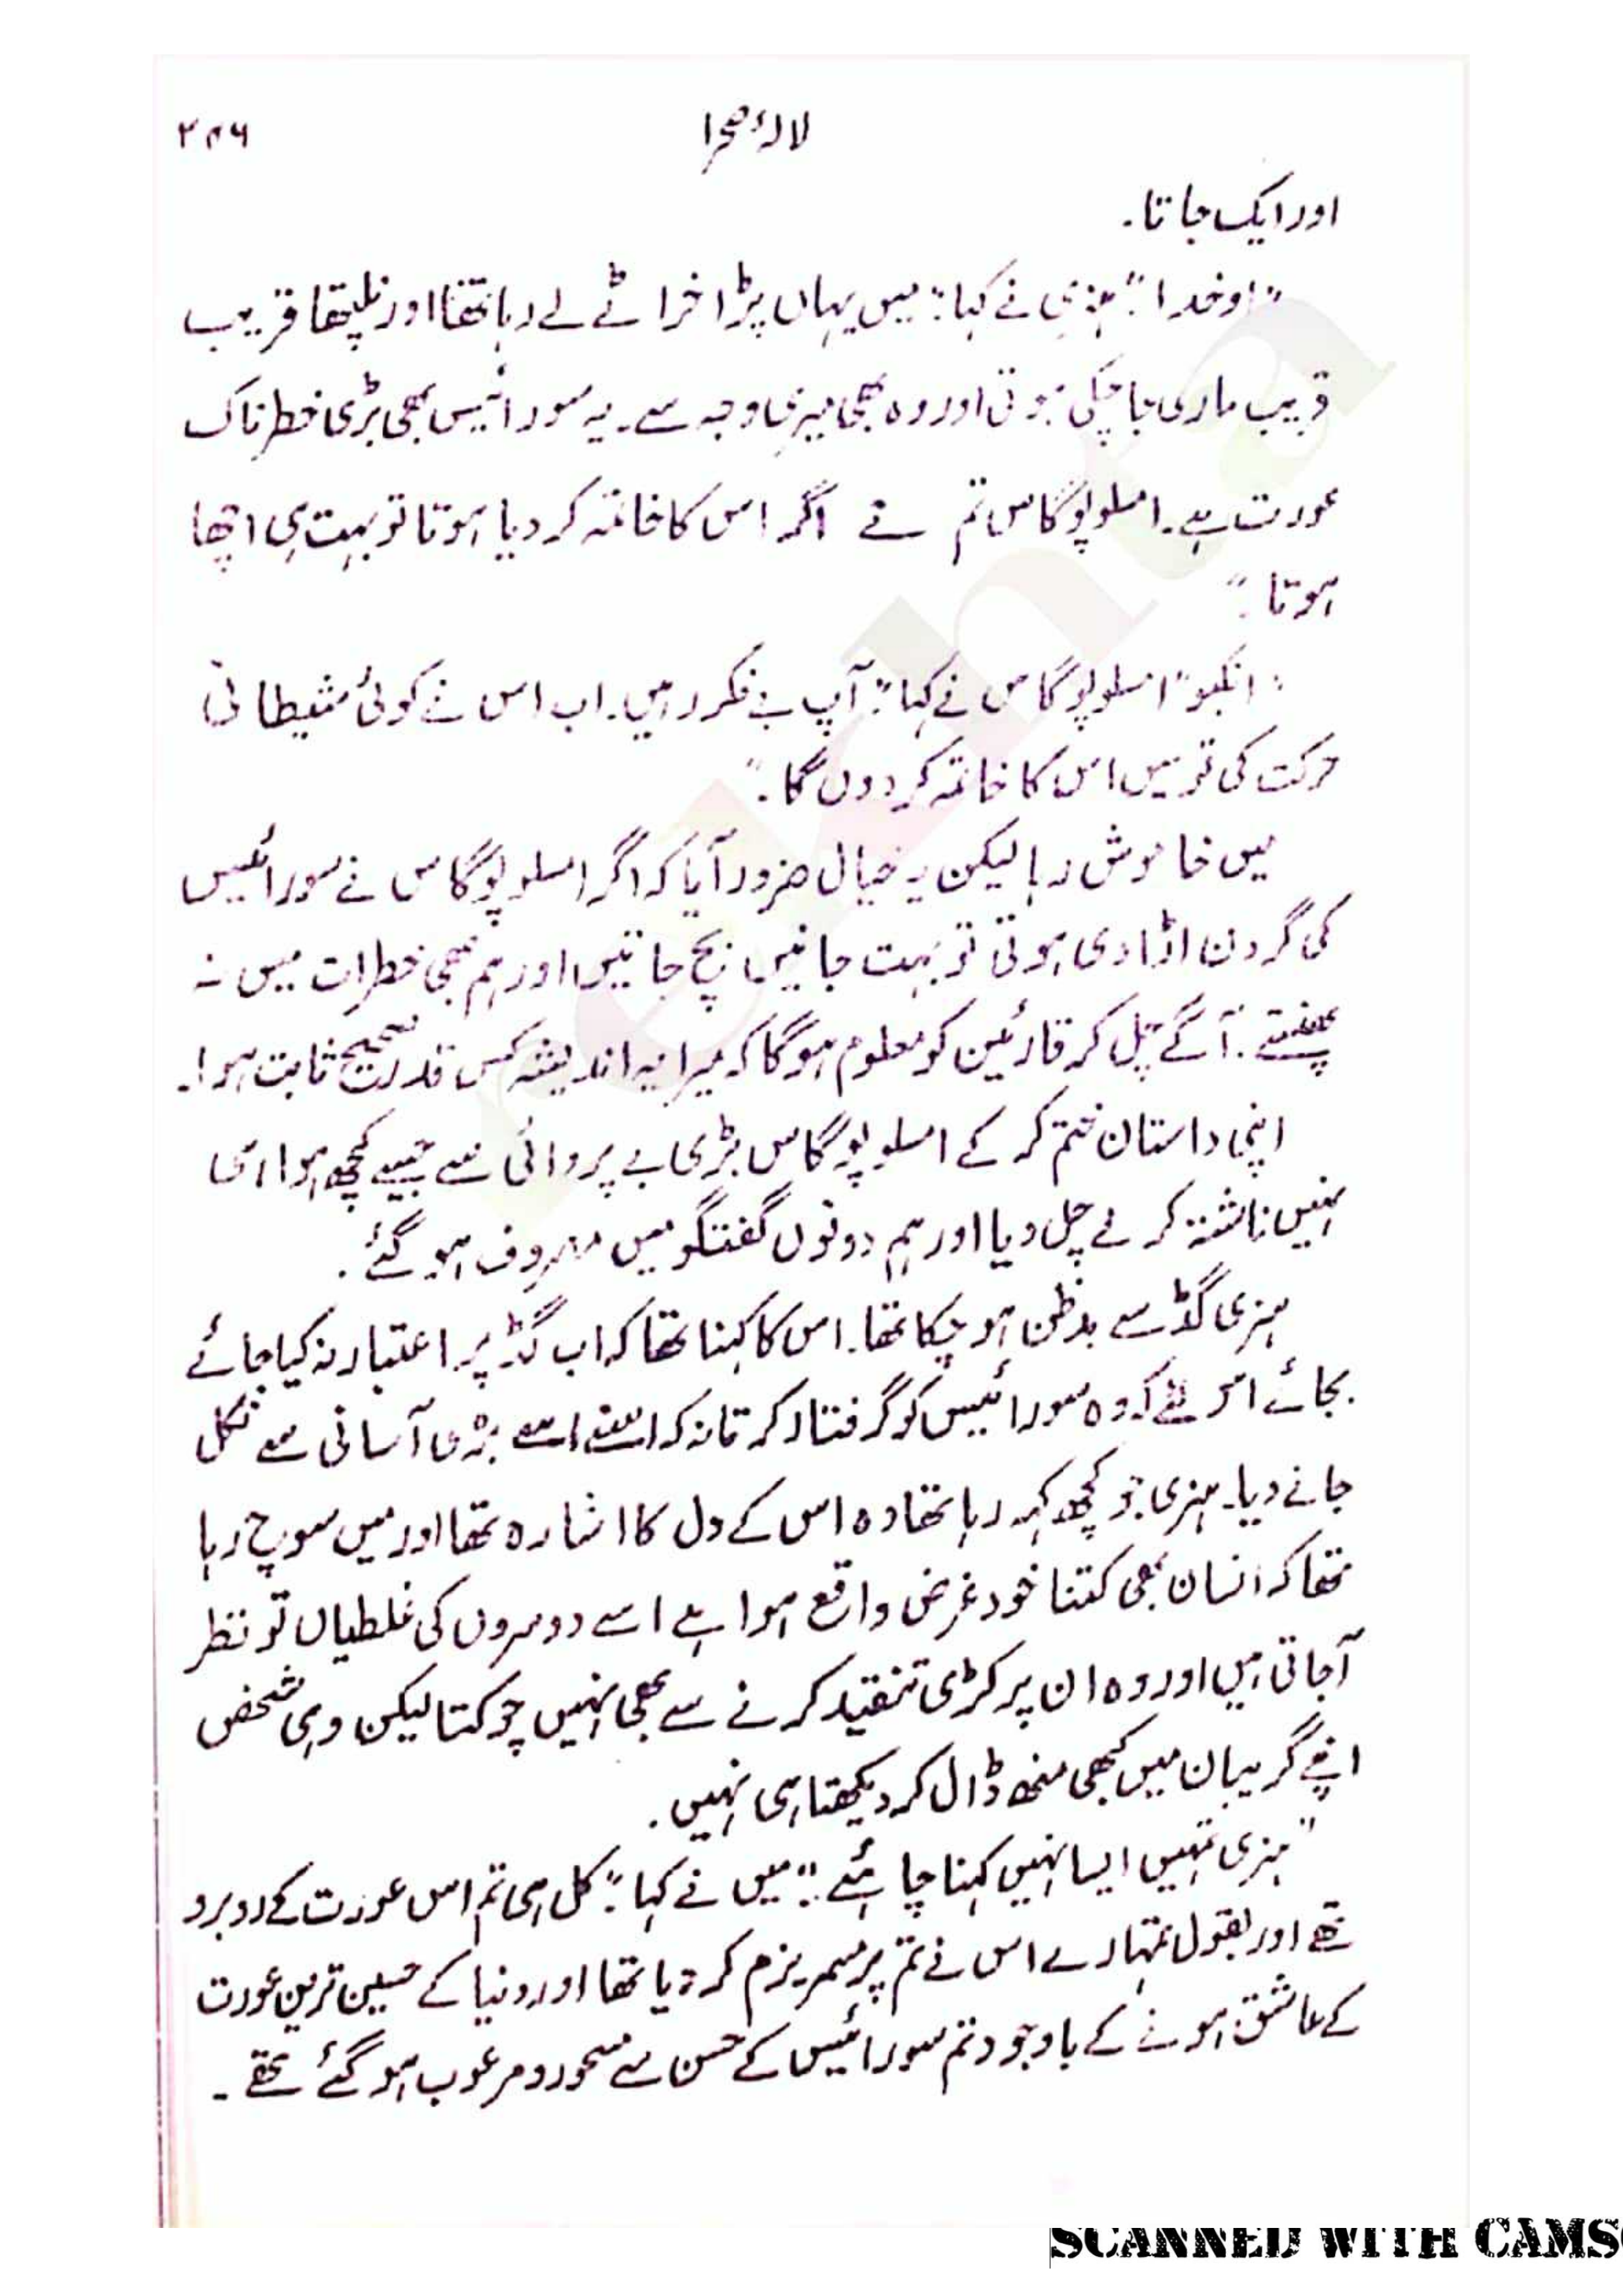 لالۂ صحرا
۲۸۶
اور ایک جاتا۔
"او خدا"! ہنری نے کہا: "میں یہاں پڑا خراٹے لے رہا تھا اور نلیتھا قریب
قریب ماری جا چکی ہوتی اور وہ بھی میری وجہ سے۔ یہ سورائیس بھی بڑی خطرناک
عورت ہے۔ امسلوپوگاس تم نے اگر اس کا خاتمہ کر دیا ہوتا تو بہت ہی اچھا
ہوتا۔"
"انکبو" امسلوپوگاس نے کہا: "آپ بے فکر رہیں۔ اب اس نے کوئی شیطانی
حرکت کی تو میں اس کا خاتمہ کر دوں گا۔"
میں خاموش رہا لیکن یہ خیال ضرور آیا کہ اگر امسلوپوگاس نے سورائیس
کی گردن اڑا دی ہوتی تو بہت جانیں بچ جاتیں اور ہم بھی خطرات میں نہ
پھنستے۔ آگے چل کر قارئین کو معلوم ہوگا کہ میرا یہ اندیشہ کس قدر صحیح ثابت ہوا۔
اپنی داستان ختم کر کے امسلوپوگاس بڑی بے پروائی سے جیسے کچھ ہوا ہی
نہیں ناشتہ کرنے چل دیا اور ہم دونوں گفتگو میں مصروف ہو گئے۔
ہنری گڈ سے بدظن ہو چکا تھا۔ اس کا کہنا تھا کہ اب گڈ پر اعتبار نہ کیا جائے
بجائے اس لئے کہ وہ سورائیس کو گرفتار کرتا نہ کہ اسنے اسے بڑی آسانی سے نکل
جانے دیا۔ ہنری جو کچھ کہہ رہا تھا وہ اس کے دل کا اشارہ تھا اور میں سوچ رہا
تھا کہ انسان بھی کتنا خود غرض واقع ہوا ہے اسے دوسروں کی غلطیاں تو نظر
آجاتی ہیں اور وہ ان پر کڑی تنقید کرنے سے بھی نہیں چوکتا لیکن وہی شخص
اپنے گریبان میں کبھی منھ ڈال کر دیکھتا ہی نہیں۔
"ہنری تمہیں ایسا نہیں کہنا چاہئے" میں نے کہا: "کل ہی تم اس عورت کے روبرو
تھے اور بقول تمہارے اس نے تم پر مسمریزم کر دیا تھا اور دنیا کے حسین ترین عورت
کے عاشق ہونے کے باوجود تم سورائیس کے حسن سے مسحور و مرعوب ہو گئے تھے۔
rekhta
SCANNED WITH CAMS